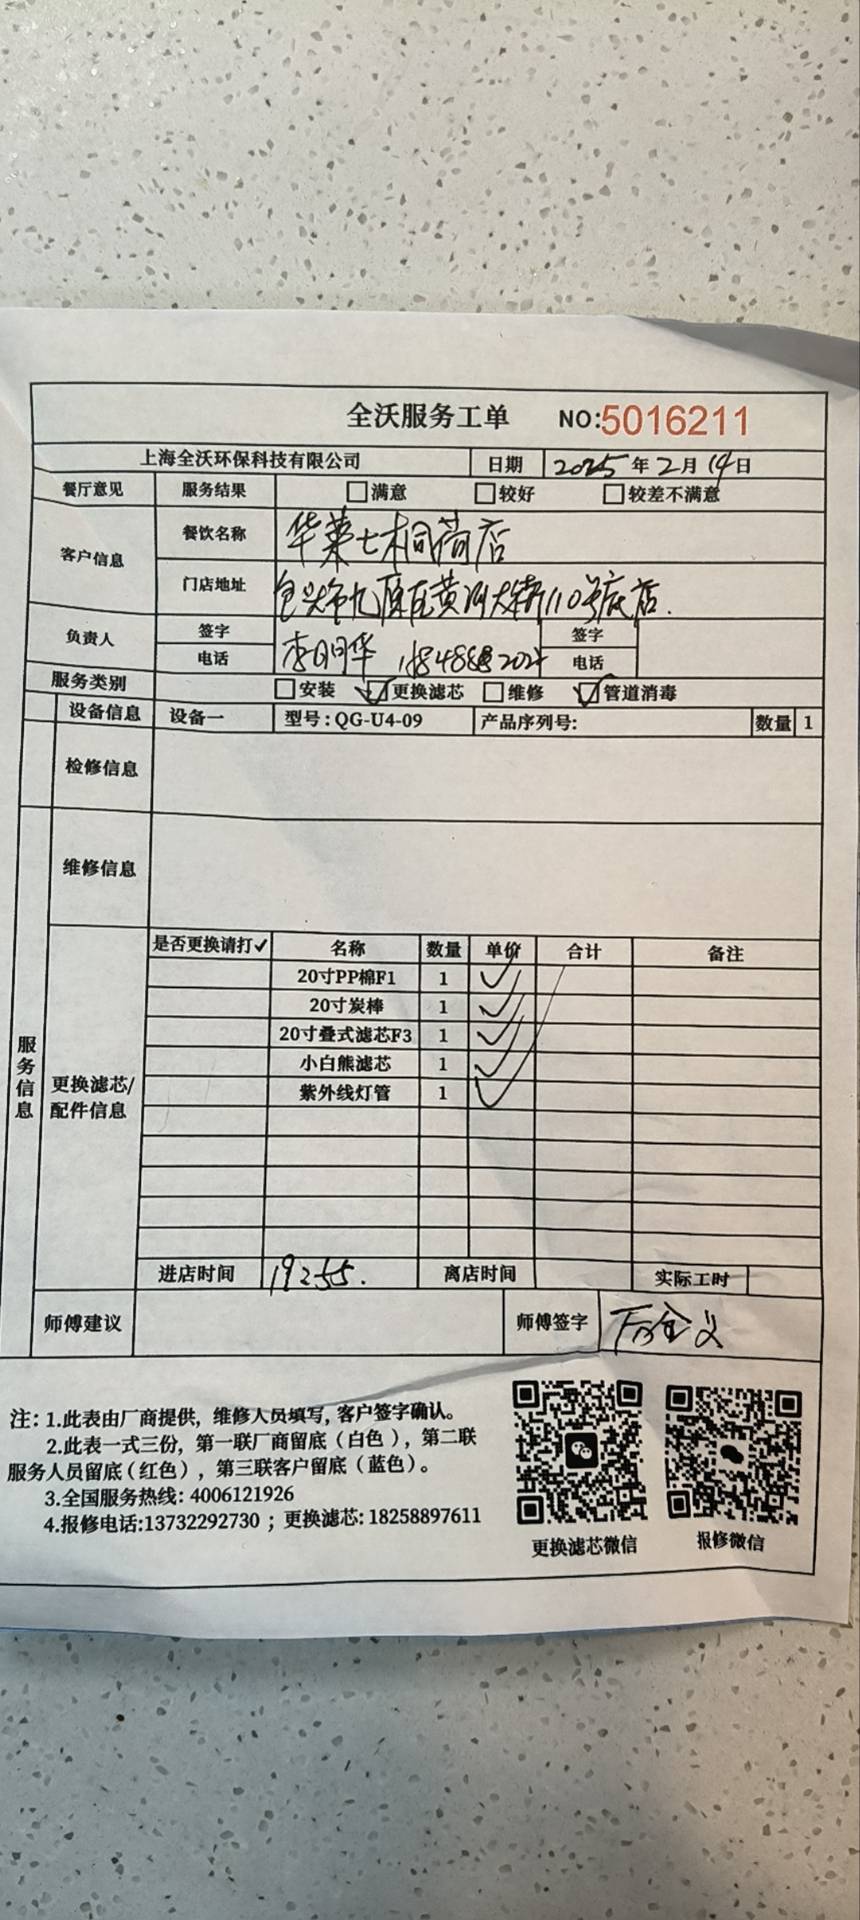 全沃服务工单 NO:5016211
上海全沃环保科技有限公司 日期 2025年2月14日
餐厅意见 服务结果 □满意 □较好 □较差不满意
客户信息 餐饮名称 华莱士
门店地址 包头市九原区黄河大街110号底店.
负责人 签字 签字
电话 电话
服务类别 □安装 ☑更换滤芯 □维修 ☑管道消毒
设备信息 设备一 型号:QG-U4-09 产品序列号: 数量 1
检修信息
维修信息
服务信息
更换滤芯/配件信息
是否更换请打✓ 名称 数量 单价 合计 备注
20寸PP棉F1 1 ✓
20寸炭棒 1 ✓
20寸叠式滤芯F3 1 ✓
小白熊滤芯 1 ✓
紫外线灯管 1 ✓
进店时间 离店时间 实际工时
师傅建议 师傅签字
注: 1.此表由厂商提供, 维修人员填写, 客户签字确认。
2.此表一式三份, 第一联厂商留底(白色), 第二联
服务人员留底(红色), 第三联客户留底(蓝色)。
3.全国服务热线: 4006121926
4.报修电话:13732292730 ; 更换滤芯: 18258897611
更换滤芯微信 报修微信